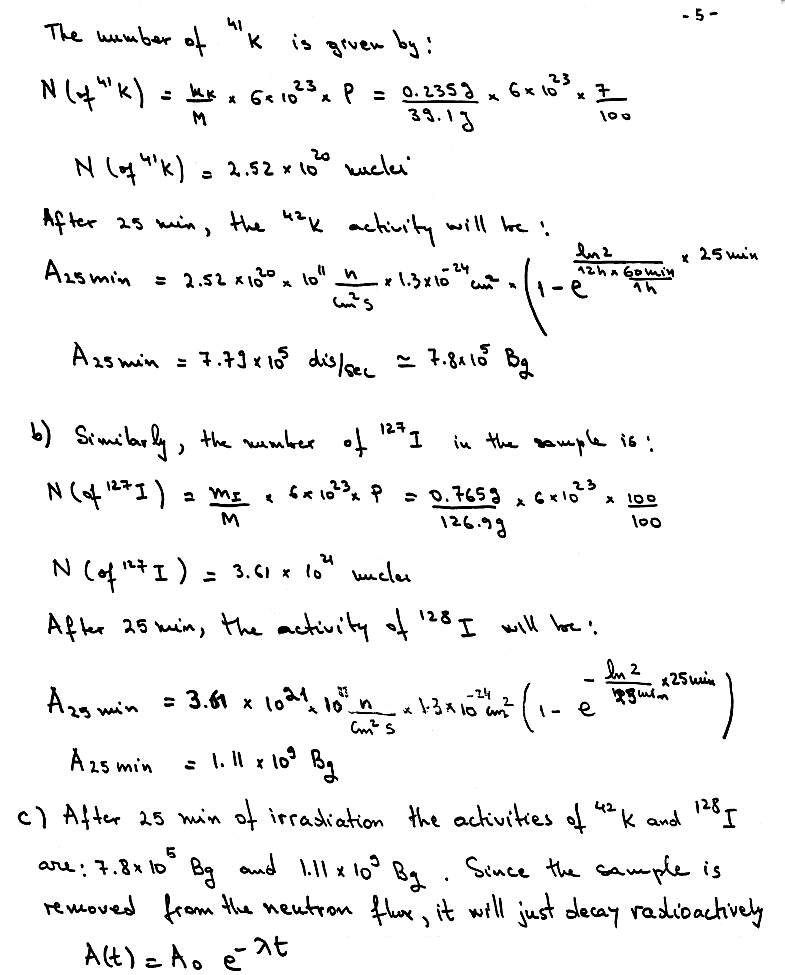 - 5 -
The number of ⁴¹K is given by:
N(of ⁴¹K) = mK/M × 6×10²³ × P = 0.235g/39.1g × 6×10²³ × 7/100
N(of ⁴¹K) = 2.52 × 10²⁰ nuclei
After 25 min, the ⁴²K activity will be:
A25min = 2.52 ×10²⁰ × 10¹¹ n/cm²s × 1.3×10⁻²⁴ cm² × (1 - e^(ln2/(12h × 60min/1h) × 25min)
A25min = 7.79×10⁵ dis/sec ≃ 7.8×10⁵ Bq
b) Similarly, the number of ¹²⁷I in the sample is:
N(of ¹²⁷I) = mI/M × 6×10²³ × P = 0.765g/126.9g × 6×10²³ × 100/100
N(of ¹²⁷I) = 3.61 × 10²¹ nuclei
After 25 min, the activity of ¹²⁸I will be:
A25min = 3.61 × 10²¹ × 10¹¹ n/cm²s × 1.3×10⁻²⁴ cm² (1 - e^(-ln2/25min × 25min))
A25min = 1.11 × 10⁹ Bq
c) After 25 min of irradiation the activities of ⁴²K and ¹²⁸I
are: 7.8×10⁵ Bq and 1.11 × 10⁹ Bq. Since the sample is
removed from the neutron flux, it will just decay radioactively
A(t) = A₀ e^(-λt)